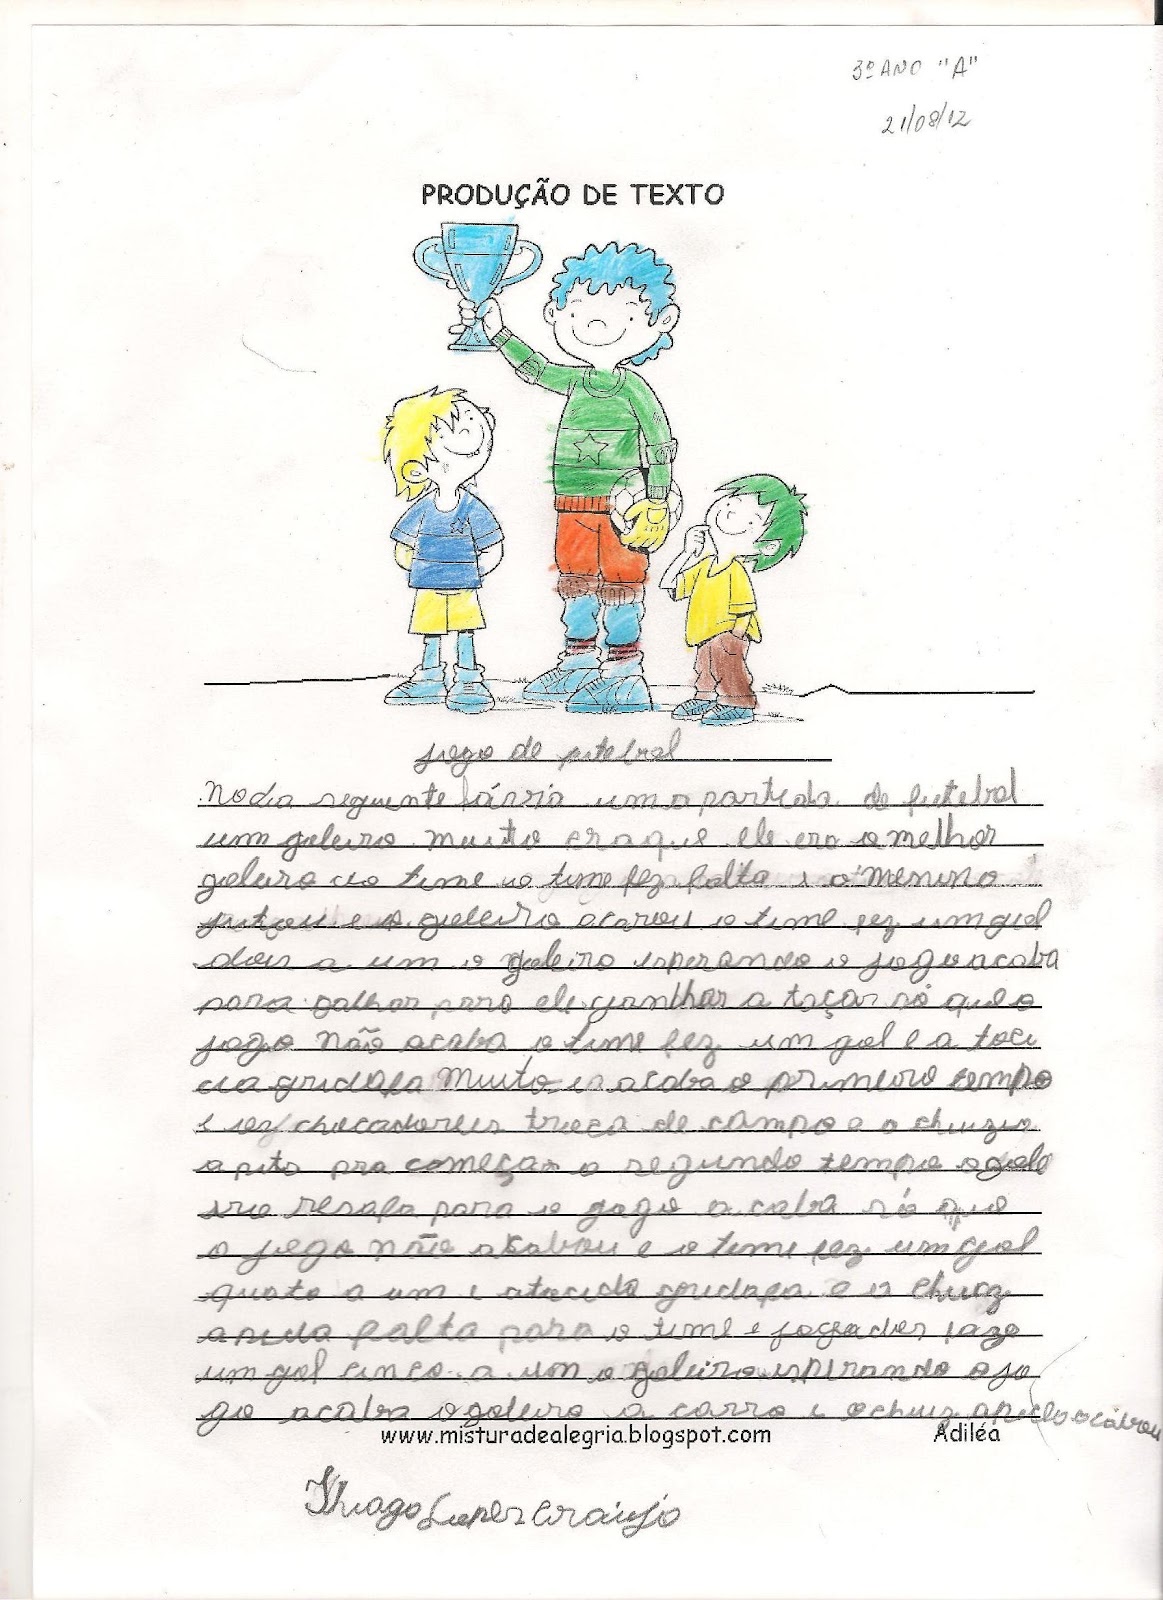 3º ANO "A"
21/08/12
PRODUÇÃO DE TEXTO
jogo de futebol
No dia seguente umа partida de futebol
um goleiro muito craque ele era o melhor
goleiro do time o time fez falta e o menino
e o goleiro o time fez um gol
dois a um o goleiro esperando o jogo acaba
para para ele ganhhar a taça só que o
jogo não acaba o time fez um gol e a toci
da gridafa muito e acaba o primeiro tempo
troca de campo e o
apita pra começar o segundo tempo o golei
para o gogo a caba só que
o jogo não acabou e o time fez um gol
quato a um e a tocida gridafa e o chuiz
apida falta para o time e jogador faze
um gol cinco a um o goleiro esperando o jo
go acaba o goleiro e o chuiz
www.misturadealegria.blogspot.com Adiléa
Thiago Lopes Araújo